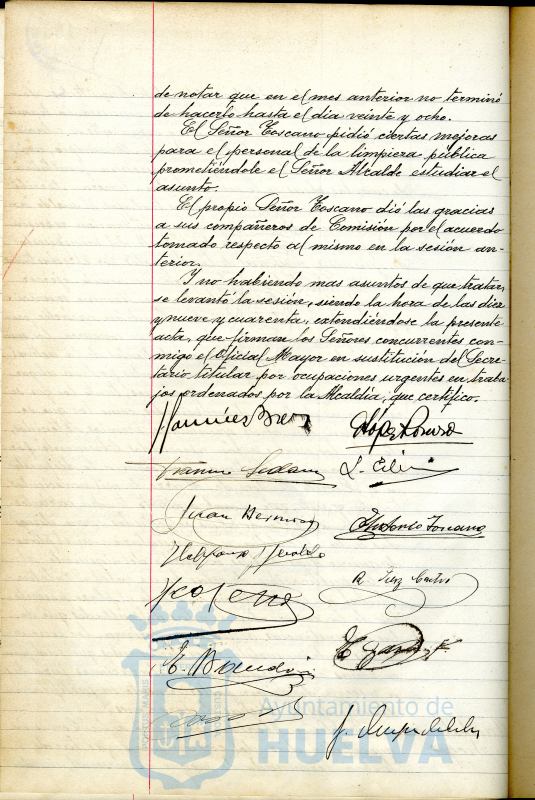 de notar que en el mes anterior no terminó
de hacerlo hasta el dia veinte y ocho.
El Señor Toscano pidió ciertas mejoras
para el personal de la limpieza pública
prometiéndole el Señor Alcalde estudiar el
asunto.
El propio Señor Toscano dió las gracias
a sus compañeros de Comisión por el acuerdo
tomado respecto al mismo en la sesión an-
terior.
Y no habiendo mas asuntos de que tratar,
se levantó la sesión, siendo la hora de las diez
y nueve y cuarenta, extendiéndose la presente
acta, que firman los Señores concurrentes con-
migo el Oficial Mayor en sustitución del Secre-
tario titular por ocupaciones urgentes en traba-
jos ordenados por la Alcaldía, que certifico.
López
Juan Bermu
Antonio Toscano
E.
Ayuntamiento de
HUELVA